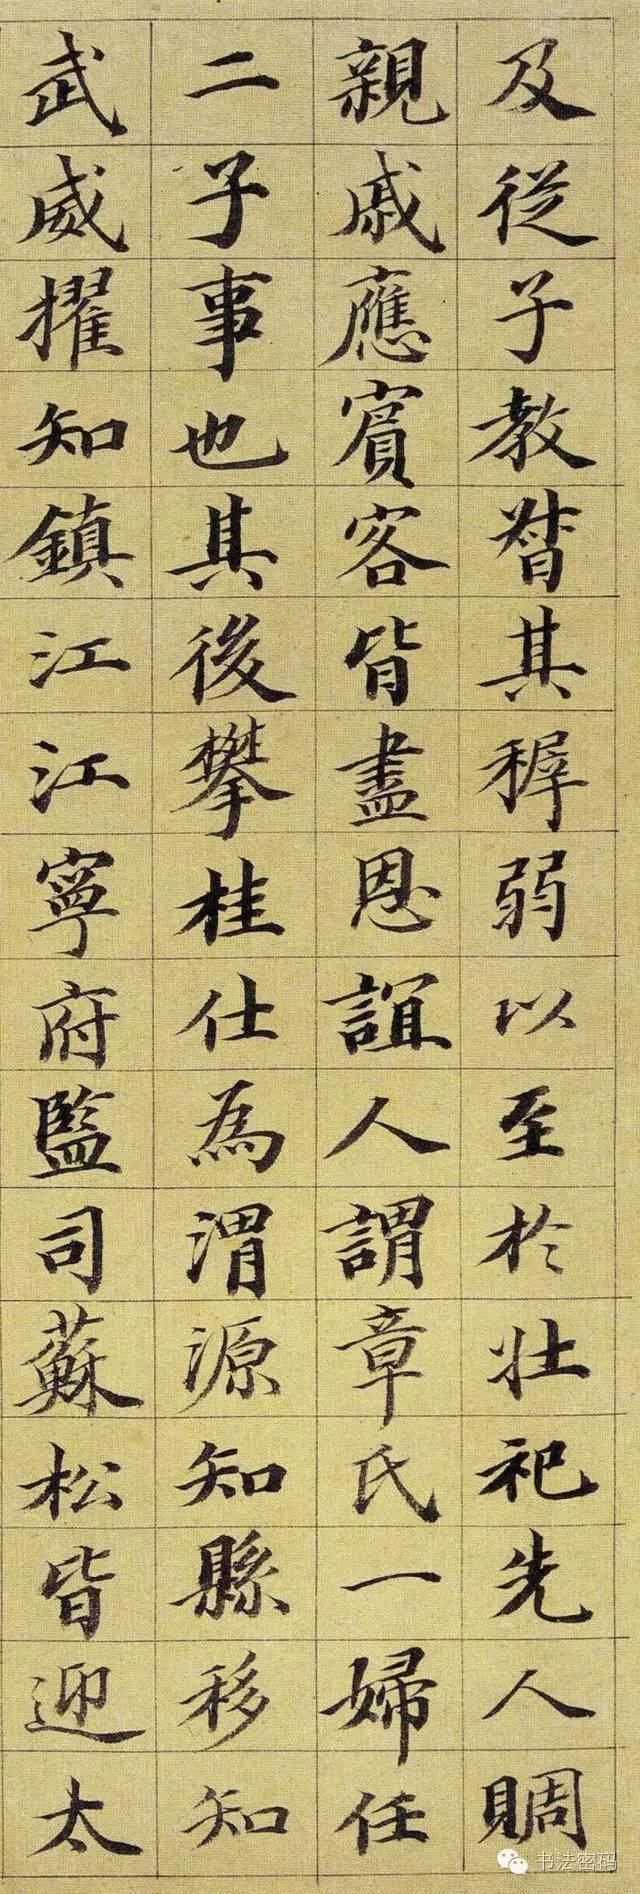 及從子教督其穉弱以至於壯祀先人賙
親戚應賓客皆盡恩誼人謂章氏一婦任
二子事也其後攀桂仕為渭源知縣移知
武威擢知鎮江江寧府監司蘇松皆迎太
书法密码